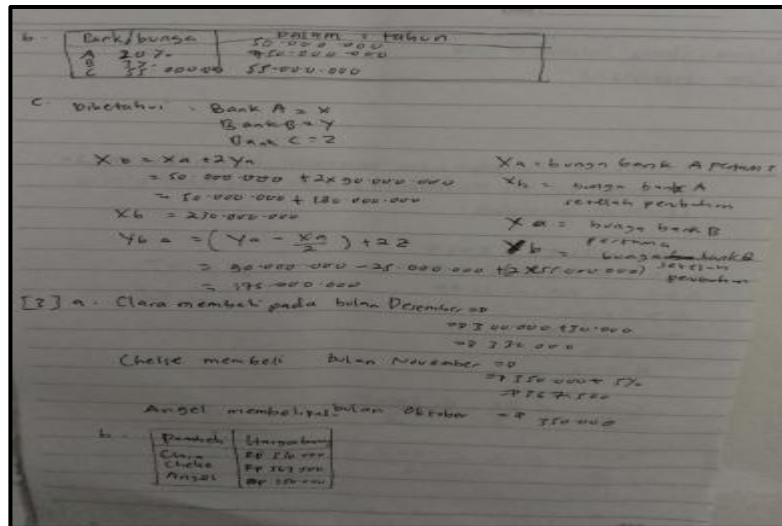 b. Bank/bunga dalam 1 tahun
A 20% 50.000.000
B 3% 90.000.000
C 55.000.000
C. Diketahui : Bank A = X
Bank B = Y
Bank C = Z
Xb = Xa + 2Ya
= 50.000.000 + 2x90.000.000
= 50.000.000 + 180.000.000
Xb = 230.000.000
Yb = (Ya - Xa/2) + 2Z
= 90.000.000 - 25.000.000 + (2x55.000.000)
= 175.000.000
Xa = bunga bank A pertama
Xb = bunga bank A
setelah perubahan
Xa = bunga bank B
pertama
Yb = bunga bank B
setelah
perubahan
[3] a. Clara membeli pada bulan Desember =>
=> 300.000 + 30.000
=> 330.000
Chelse membeli bulan November =>
=> 350.000 + 5%
=> 367.500
Angel membeli bulan Oktober => 350.000
b. Pembeli
Clara
Chelse Rp 367.500
Angel Rp 350.000